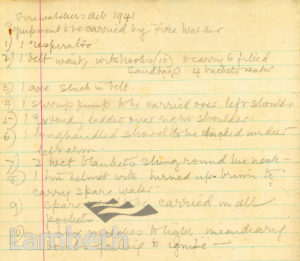 Firewatchers Act 1941
Equipment to be carried by Fire Watcher
1) 1 respirator
2) 1 belt waist, with hooks (10) to carry 6 filled
sandbags 4 buckets water
3) 1 axe stuck in belt.
4) 1 stirrup pump to be carried over left shoulder
5) 1 extending ladder over right shoulder.
6) 1 longhandled shovel to be tucked under
left arm.
7) 2 wet blankets slung round neck
8) 1 tin helmet with turned up brim to
carry spare water
9) spare carried in all
pockets
to light incendiary
to ignite -
Lambeth